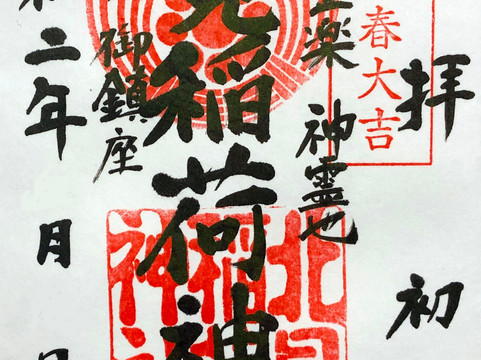 拝 初
春大吉
楽 神霊也
見稲荷神
御鎮座
二年 月 日
北
稲
神